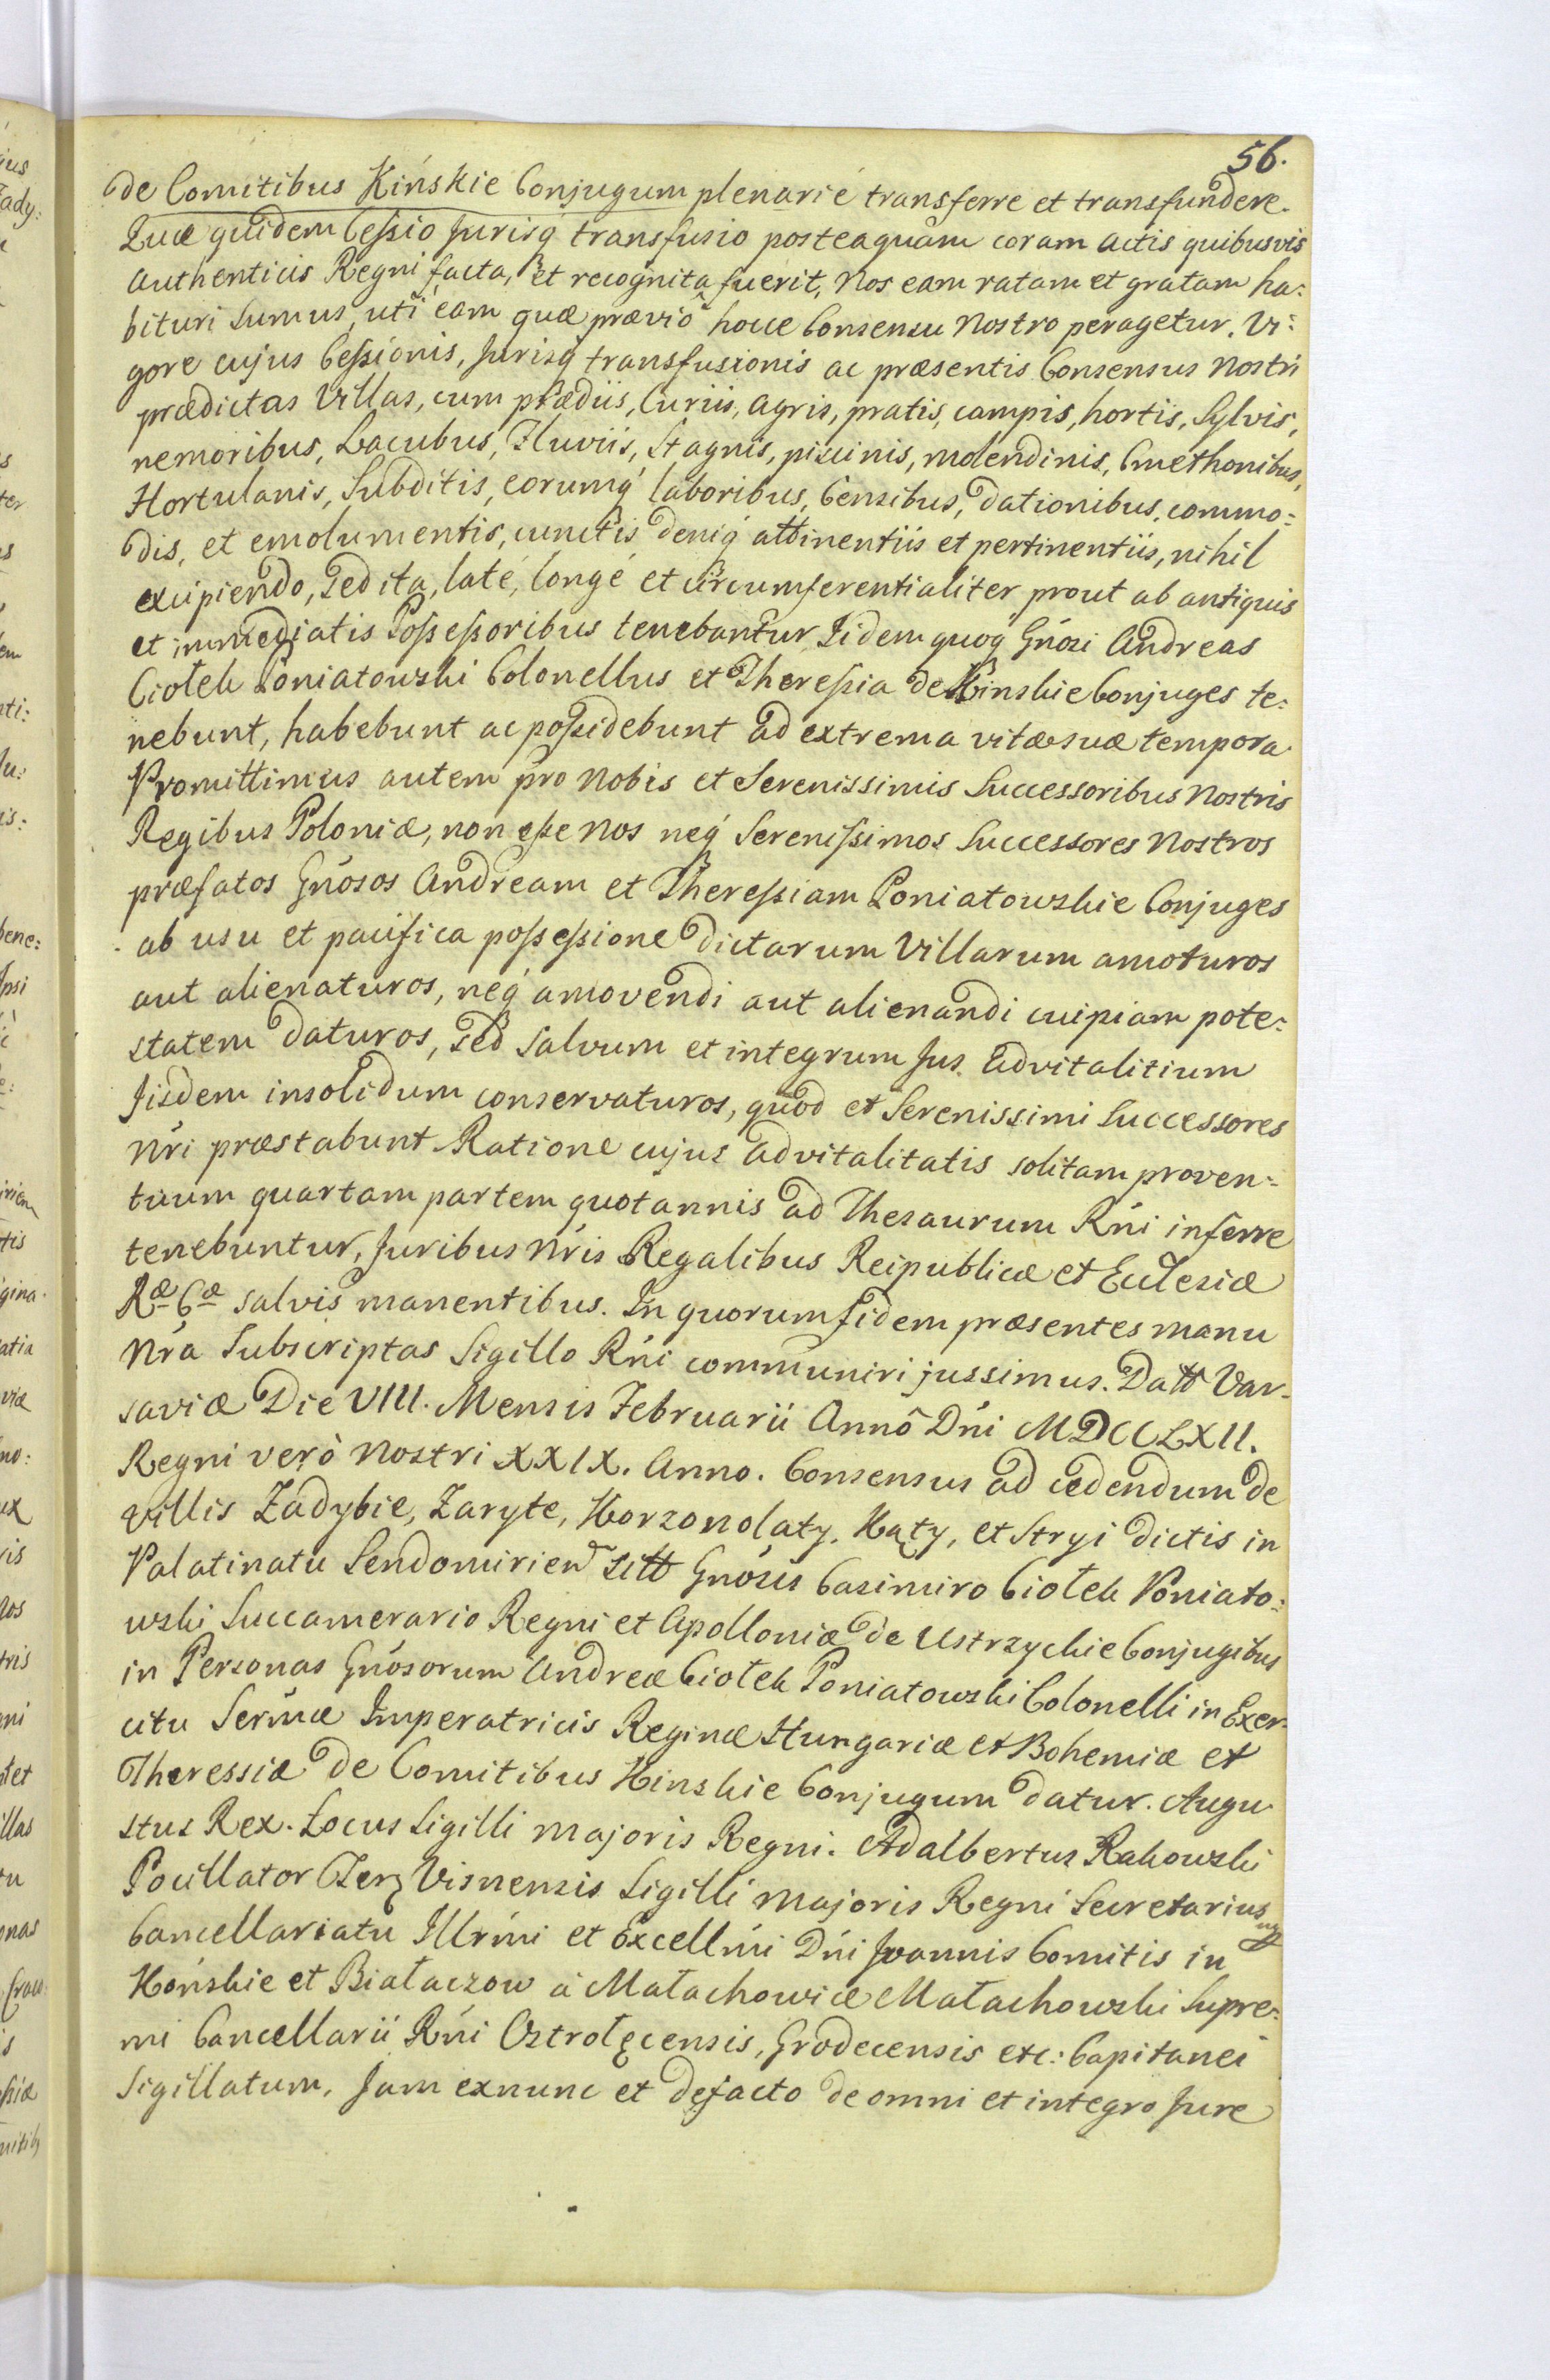 56.
de Comitibus Kińskie Conjugum plenarié transferre et transfundere.
Quæ quidem Ceſsio Jurisq́ transfusio posteaquàm coram actis quibusvis
authenticis Regni facta, et recognita fuerit, Nos eam ratam et gratam ha:
bituri sumus, uti eam quæ præviô hocce Consensu Nostro peragetur. Vi:
gore cujus Ceſsionis, Jurisq́ transfusionis ac præsentis Consensus Nostri
prædictas Villas, cum prædiis, Curiis, agris, pratis, campis, hortis, Sylvis,
nemoribus, Lacubus, Fluviis, Stagnis, piscinis, molendinis, Cmethonibus,
Hortulanis, Subditis, eorumq́ laboribus, Censibus, dationibus, commo:
dis, et emolumentis, cunctis deniq́ attinentiis et pertinentiis, nihil
excipiendo, sed ita, laté, longé et circumferentialiter prout ab antiquis
et immediatis Poſseſsoribus tenebantur, Iidem quoq Gńosi Andreas
Ciołek Poniatowski Colonellus et Thereſsia de Kinskie Conjuges te:
nebunt, habebunt ac poſsidebunt ad extrema vitæ suæ tempora.
Promittimus autem pro Nobis et Serenissimis Successoribus Nostris
Regibus Poloniæ, non eſse Nos neq́ Sereniſsimos Successores Nostros
præfatos Gńosos Andream et Thereſsiam Poniatowskie Conjuges
ab usu et pacifica poſseſsione dictarum Villarum amoturos
aut alienaturos, neq́ amovendi aut alienandi cuipiam pote:
statem daturos, sed salvum et integrum Jus advitalitium
Jisdem insolidum conservaturos, quod et Serenissimi Successores
Nŕi præstabunt. Ratione cujus advitalitatis solitam proven:
tuum quartam partem quotannis ad Thesaurum Rńi inferre
tenebuntur, Juribus Nŕis Regalibus Reipublicæ et Ecclesiæ
Ræ Cæ salvis manentibus. In quorum fidem præsentes manu
Nŕa Subscriptas Sigillo Rńi communiri jussimus. Datt Var-
saviæ Die VIII. Mensis Februarii Annô Dńi MDCCLXII.
Regni verò Nostri XXIX. Anno. Consensus ad cedendum de
villis Zadybie, Zaryte, Korzonolaty, Kąty, et Stryi dictis in
Palatinatu Sendomirien sitt Gńosis Casimiro Ciołek Poniato:
wski Succamerario Regni et Apolloniæ de Ustrzyckie Conjugibus
in Personas Gńosorum Andreæ Ciołek Poniatowski Colonelli in Exer:
citu Serḿæ Imperatricis Reginæ Hungariæ et Bohemiæ et
Theressiæ de Comitibus Kinskie Conjugum datur. Augu
stus Rex. Locus Sigilli majoris Regni. Adalbertus Rakowski
Pocillator Terꝫ Visnensis Sigilli majoris Regni Secretarius
Cancellariatu Illrḿi et Excellḿi Dńi Joannis Comitis in
Końskie et Białaczow a Małachowice Małachowski Supre:
mi Cancellarii Rńi Ostrołęcensis, Grodecensis etc: Capitanei
Sigillatum, Jam exnunc et defacto de omni et integro Jure